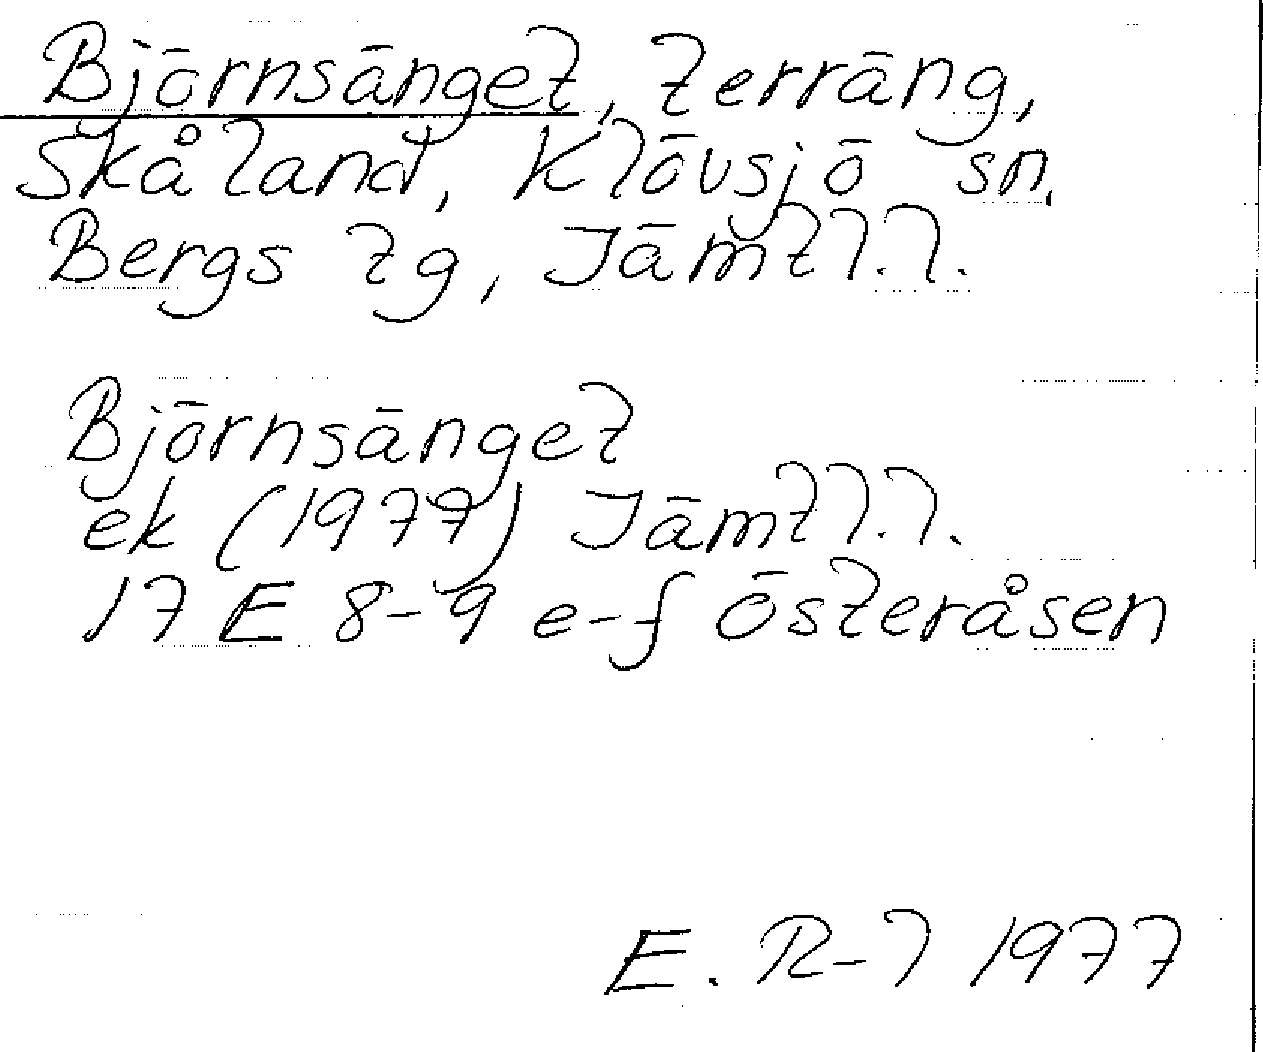 Björnsänget, terräng,
Skåland, Klövsjö sn,
Bergs tg, Jämtl.l.
Björnsänget
ek (1977) Jämtl.l.
17 E 8-9 e-f Österåsen
E. R-l 1977